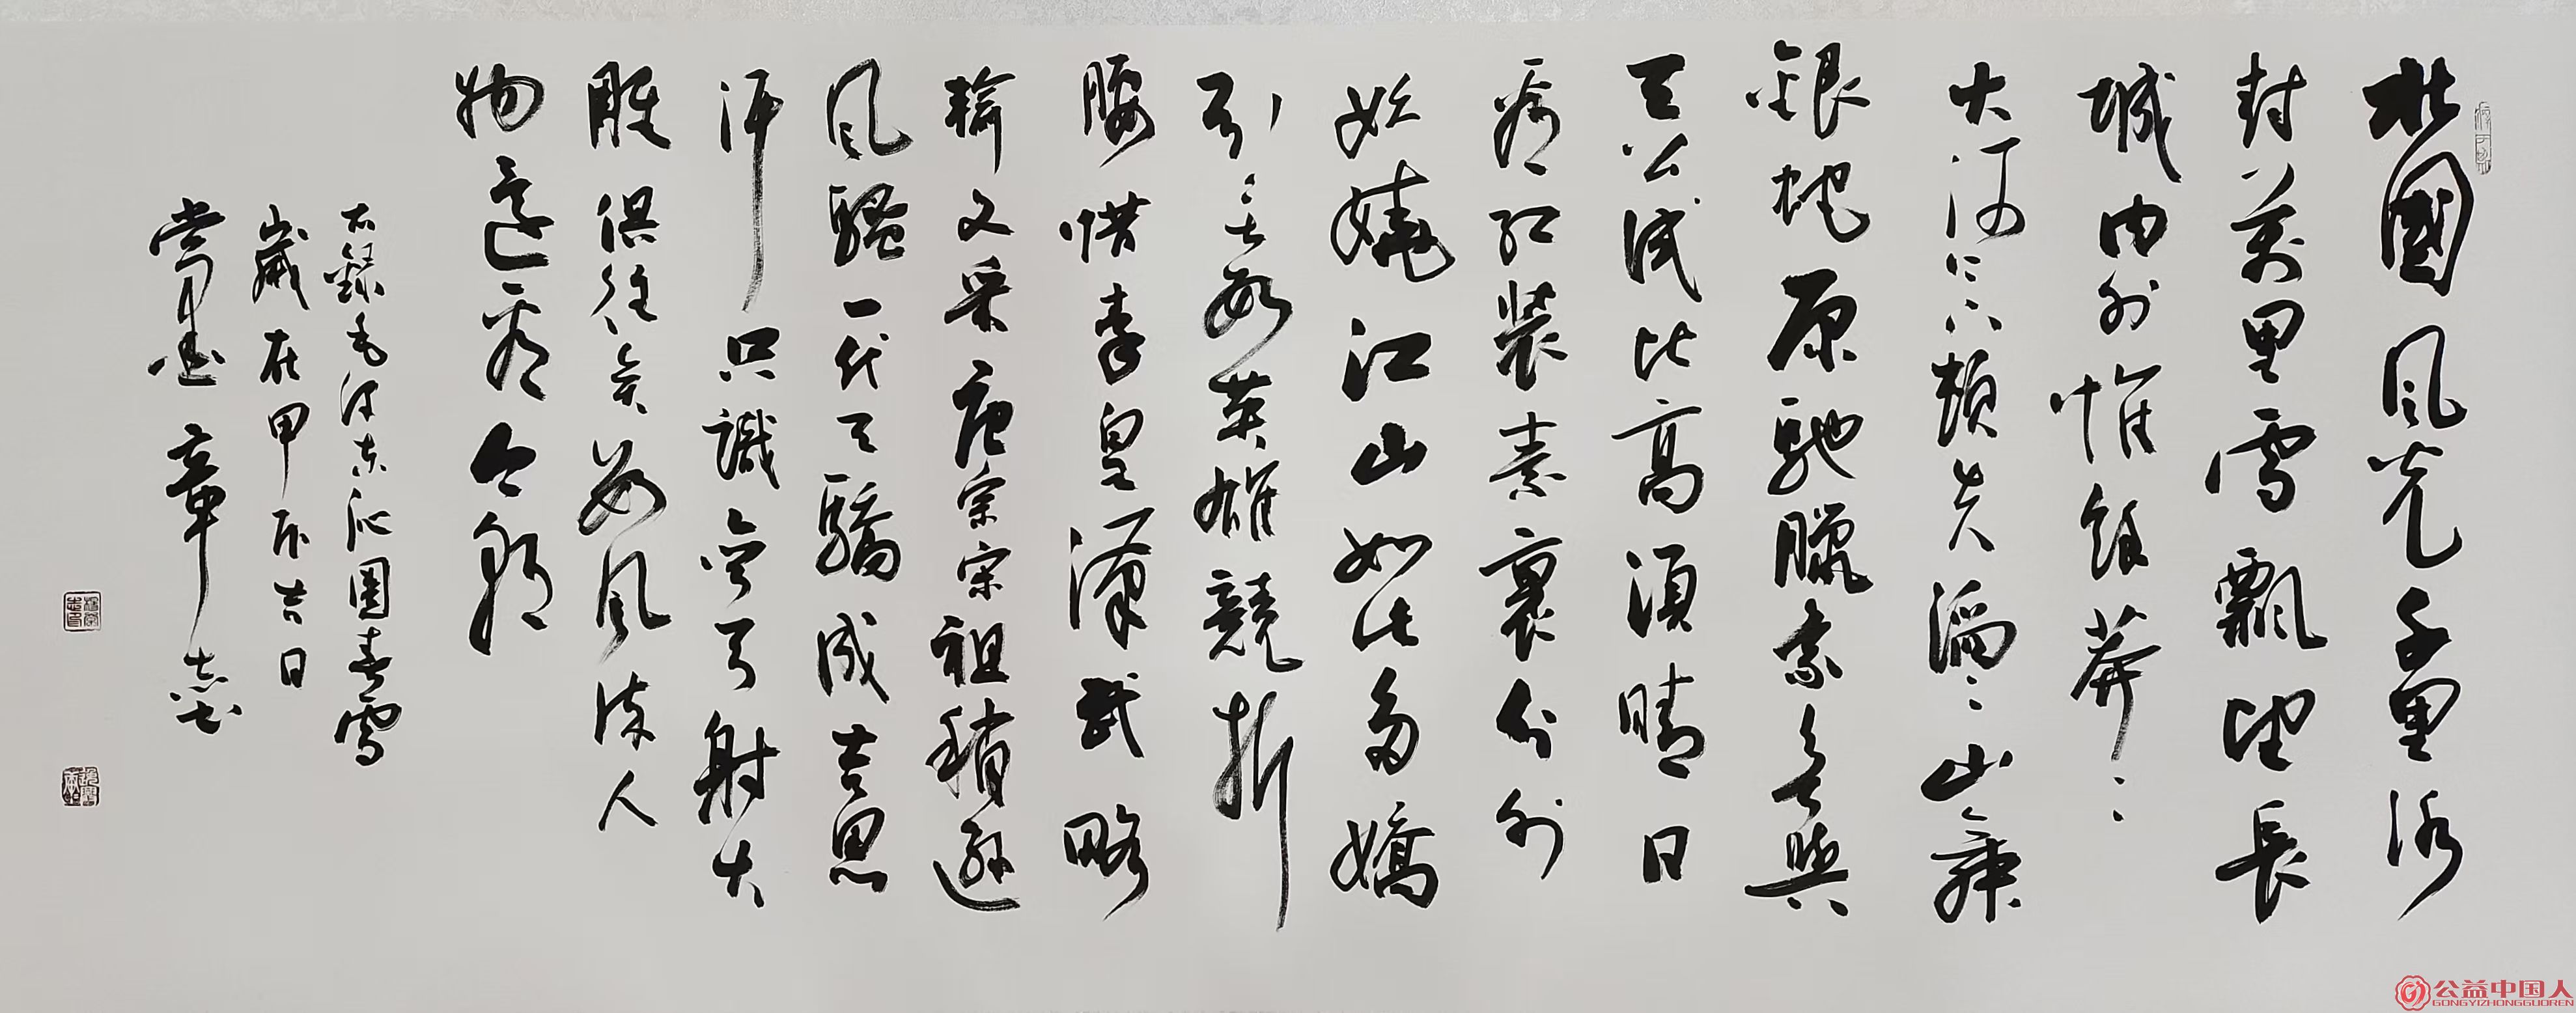 北國風光千里冰
封萬里雪飄望長
城內外惟餘莽〻
大河上下頓失滔〻山舞
銀蛇原馳臘象欲與
天公試比高須晴日
看紅裝素裹分外
妖嬈江山如此多嬌
引無數英雄競折
腰惜秦皇漢武略
輸文采唐宗宋祖稍遜
風騷一代天驕成吉思
汗只識彎弓射大
雕俱往矣數風流人
物還看今朝
右錄毛澤東沁園春雪
歲在甲辰吉日
章
公益中国人
GONGYIZHONGGUOREN